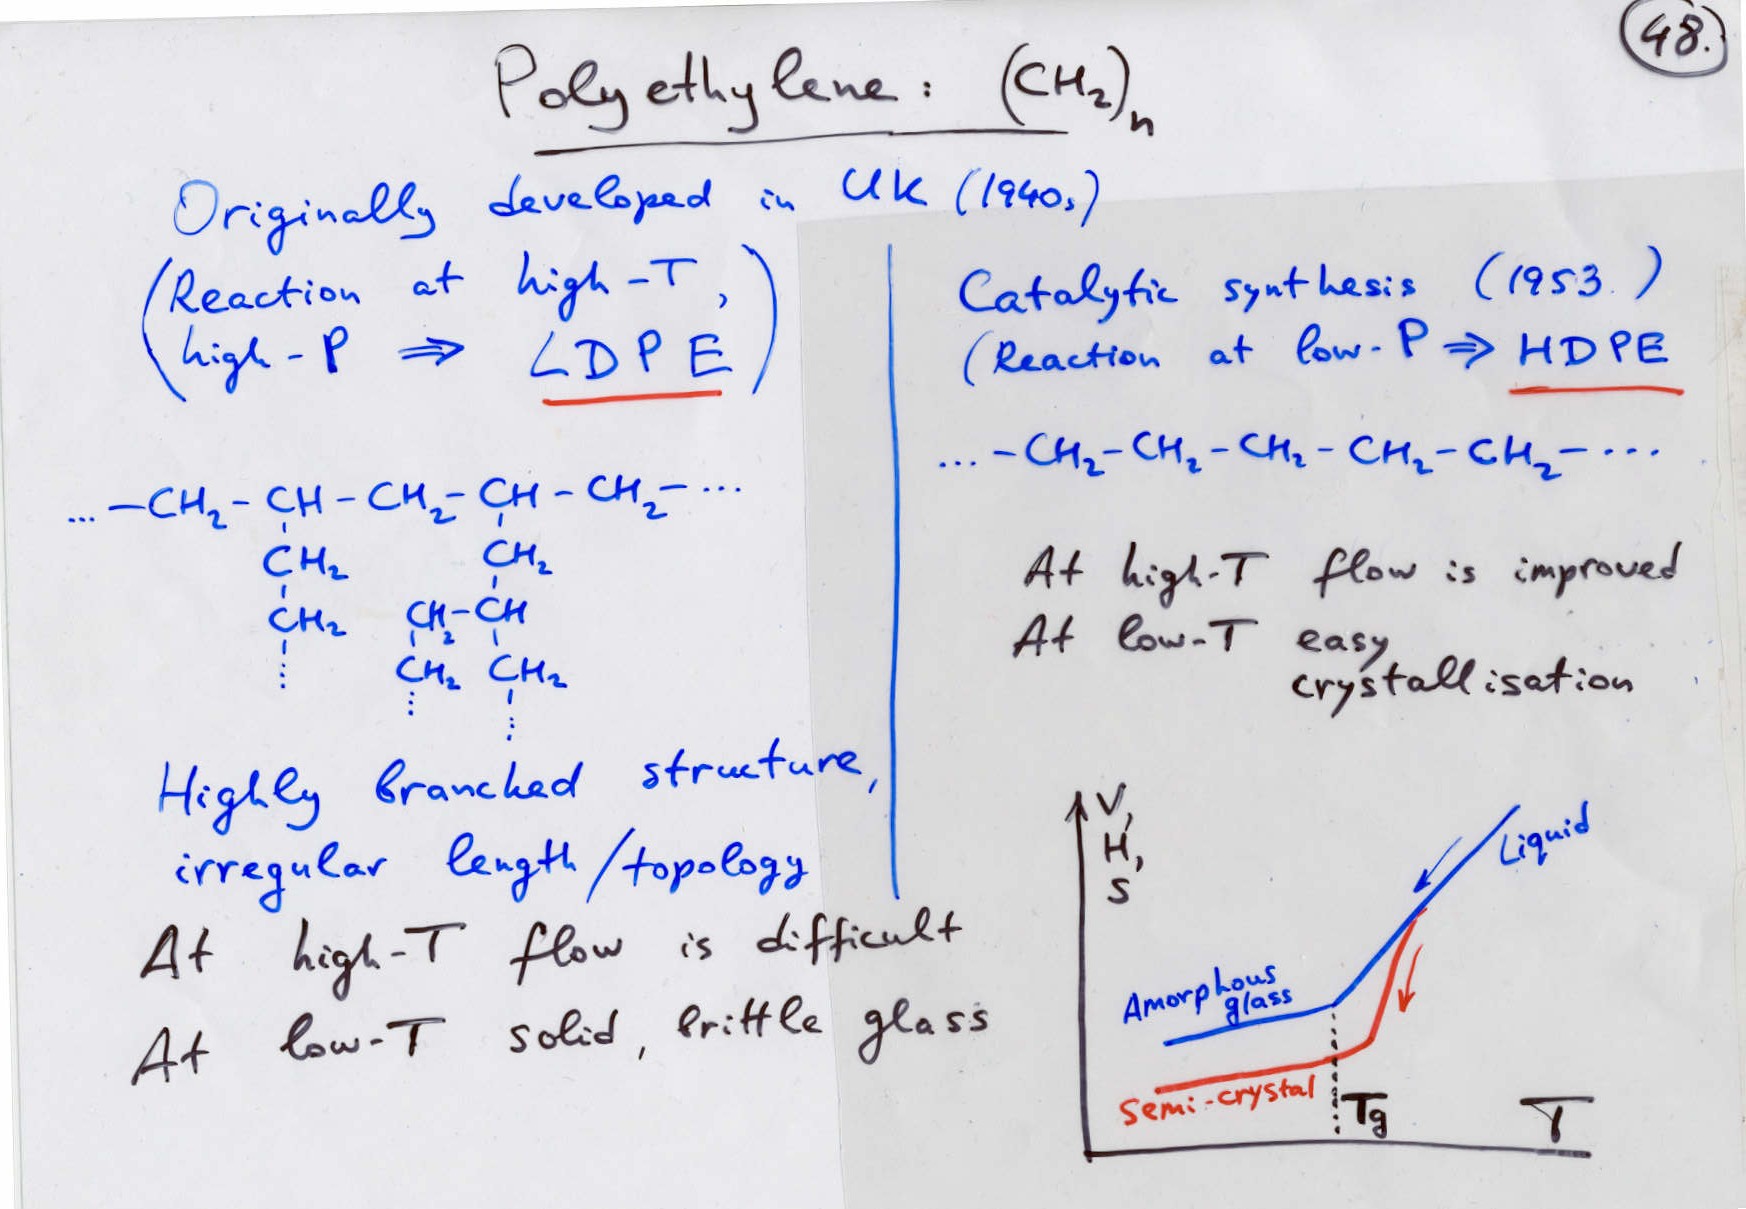 48.
Polyethylene: (CH₂)ₙ
Originally developed in UK (1940s)
(Reaction at high-T,
high-P ⇒ LDPE)
...-CH₂-CH-CH₂-CH-CH₂-...
CH₂ CH₂
CH₂ CH₂-CH
CH₂ CH₂
Highly branched structure,
irregular length/topology
At high-T flow is difficult
At low-T solid, brittle glass
Catalytic synthesis (1953.)
(Reaction at low-P ⇒ HDPE
...-CH₂-CH₂-CH₂-CH₂-CH₂-...
At high-T flow is improved
At low-T easy
crystallisation
V,
H,
S
Liquid
Amorphous
glass
Semi-crystal
Tg
T